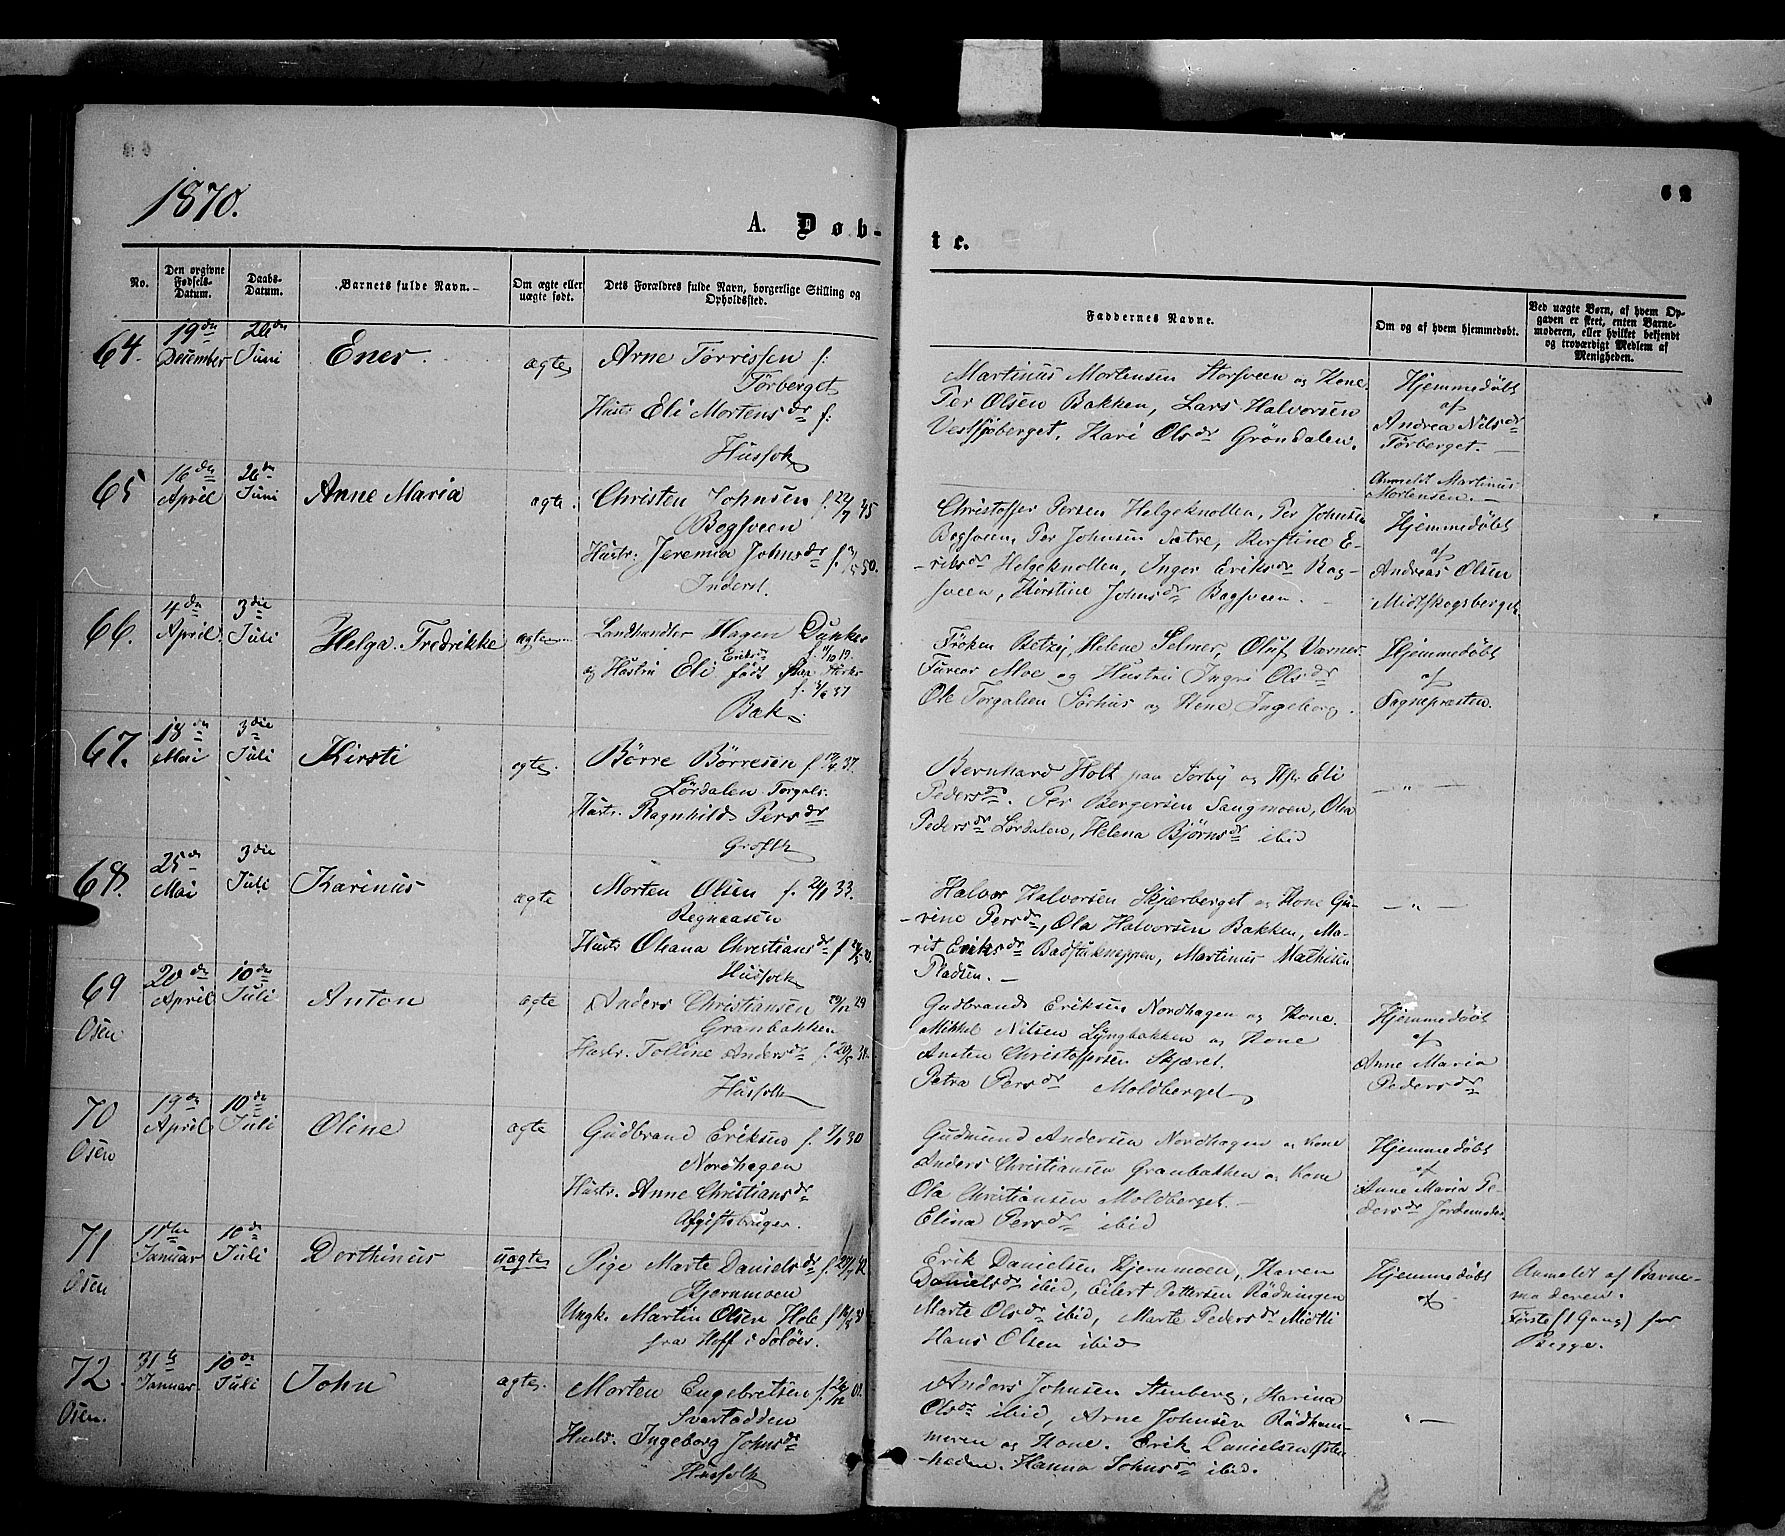 1870.
62
A. Døb-
te.
No.
Den opgivne Fødsels-Datum.
Daabs-Datum.
Barnets fulde Navn.
Om ægte eller uægte født.
Dets Forældres fulde Navn, borgerlige Stilling og Opholdssted.
Faddernes Navne.
Om og af hvem hjemmedøbt.
Ved uægte Børn, af hvem Opgaven er skeet, enten Barnemoderen, eller hvilket bekjendt og troværdigt Medlem af Menigheden.
64. 19de December 26de Juni Ener. ægte
Arne Tørrissen f:
Tørberget
Hustr. Eli Mortensdr f:
Husfolk
Martinus Mortensen Storsveen og Kone
Per Olsen Bakken, Lars Halvorsen
Vestsjøberget, Kari Olsdr Gröndalen.
Hjemmedøbt
af
Andrea Nilsdr
Tørberget. —
Anmeldt Martinus
Mortensen. —
65 16de April 26de Juni Anne Maria ægte.
Christen Johnsen f. 22/7 45
Bogsveen
Hustr. Jeremia Johnsdr f. 50.
Inderst.
Christoffer Persen Helgeknollen, Per Johnsen
Bogsveen, Per Johnsen Sætre, Kirstine E-
-riksdr Helgeknollen, Inger Eriksdr Bag-
sveen, Kirstine Johnsdr Bagsveen. —
Hjemmedøbt
af
Andreas Olsen
Midtskogsberget
66. 4de April 3die Juli Helga Fredrikke ægte
Landhandler Hagen Dunker
f. 11/10 19.
og Hustru Eli Eriksdr født
f. 3/6 37
Bak
Frøken Betzy Helene Selmer, Oluf Værner
Fureer Moe og Hustru Ingri Olsdr
Ole Torgalsen Sørhus og Kone Ingeborg.
Hjemmedøbt
af
Sognepresten.
67. 18de Mai 3die Juli Kirsti ægte
Børre Børresen f. 37.
Lördalen Torgals.
Hustr. Ragnhild Persdr
Bernhard Holt paa Sörby og Eli
Pedersdr. Per Bergersen Sangmoen, Olea
Pedersdr Lördalen, Helena Bjørnsdr ibid
— " —
68. 25de Mai 3die Juli Karinus ægte
Morten Olsen f. 24/1 33.
Regnaasen
Hustr Oleana Christiansdr f
Husfolk
Halvor Halvorsen Skjærberget og Kone Gu-
-rine Persdr, Ola Halvorsen Bakken, Ma-
rit Eriksdr Badstuknappen, Martinus Mathisen
Pladsen. —
— " —
69 Osen 20de April 10de Juli Anton ægte
Anders Christiansen 29/12 29
Granbakken
Hustr. Tolline Andersdr f. 38.
Husfolk
Gudbrand Eriksen Nordhagen og Kone.
Mikkel Nilsen Lyngbakken og Kone
Austen Christoffersen Skjæret.
Petra Persdr Moldberget
Hjemmedøbt
af
Anne Maria
Pedersdr
70 Osen 19de April 10de Juli Oline ægte
Gudbrand Eriksen f. 7/1 30
Nordhagen
Hustr. Anne Christiansdr
Afgiftsbruger.
Gudmund Andersen Nordhagen og Kone
Anders Christiansen Granbakken og Kone
Ola Christiansen Moldberget. —
Elina Persdr ibid
Hjemmedøbt
af
Anne Maria Pe-
dersdr
71 Osen 11te Januar 10de Juli Dorthinus uægte
Pige Marte Danielsdr f. 42
Kjernmoen
Ungk. Martin Olsen Hole f.
fra Hoff i Solöer.
Erik Danielsen Kjernmoen, Karen
Danielsdr ibid, Eilert Pettersen Rådningen
Marte Olsdr ibid, Marte Pedersdr Midtli
Hans Olsen ibid
Hjemmedøbt
af
Anmeldt af Barne-
moderen.
Første (1 Gang) for
Begge.
72. Osen. 31te Januar 10de Juli John ægte
Morten Engebretsen f.
Svartadden
Hustr. Ingeborg Johnsdr
Husfolk
Anders Johnsen Stenberg, Karina
Olsdr ibid, Arne Johnsen Rådham-
meren og Kone. Erik Danielsen Østen-
heden. Hanna Johnsdr ibid.
" —